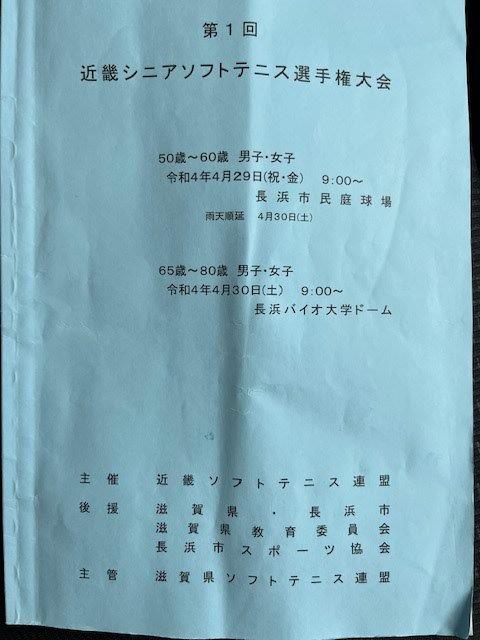 第1回
近畿シニアソフトテニス選手権大会
50歳～60歳 男子・女子
令和4年4月29日(祝・金) 9:00～
長浜市民庭球場
雨天順延 4月30日(土)
65歳～80歳 男子・女子
令和4年4月30日(土) 9:00～
長浜バイオ大学ドーム
主催 近畿ソフトテニス連盟
後援 滋賀県・長浜市
滋賀県教育委員会
長浜市スポーツ協会
主管 滋賀県ソフトテニス連盟